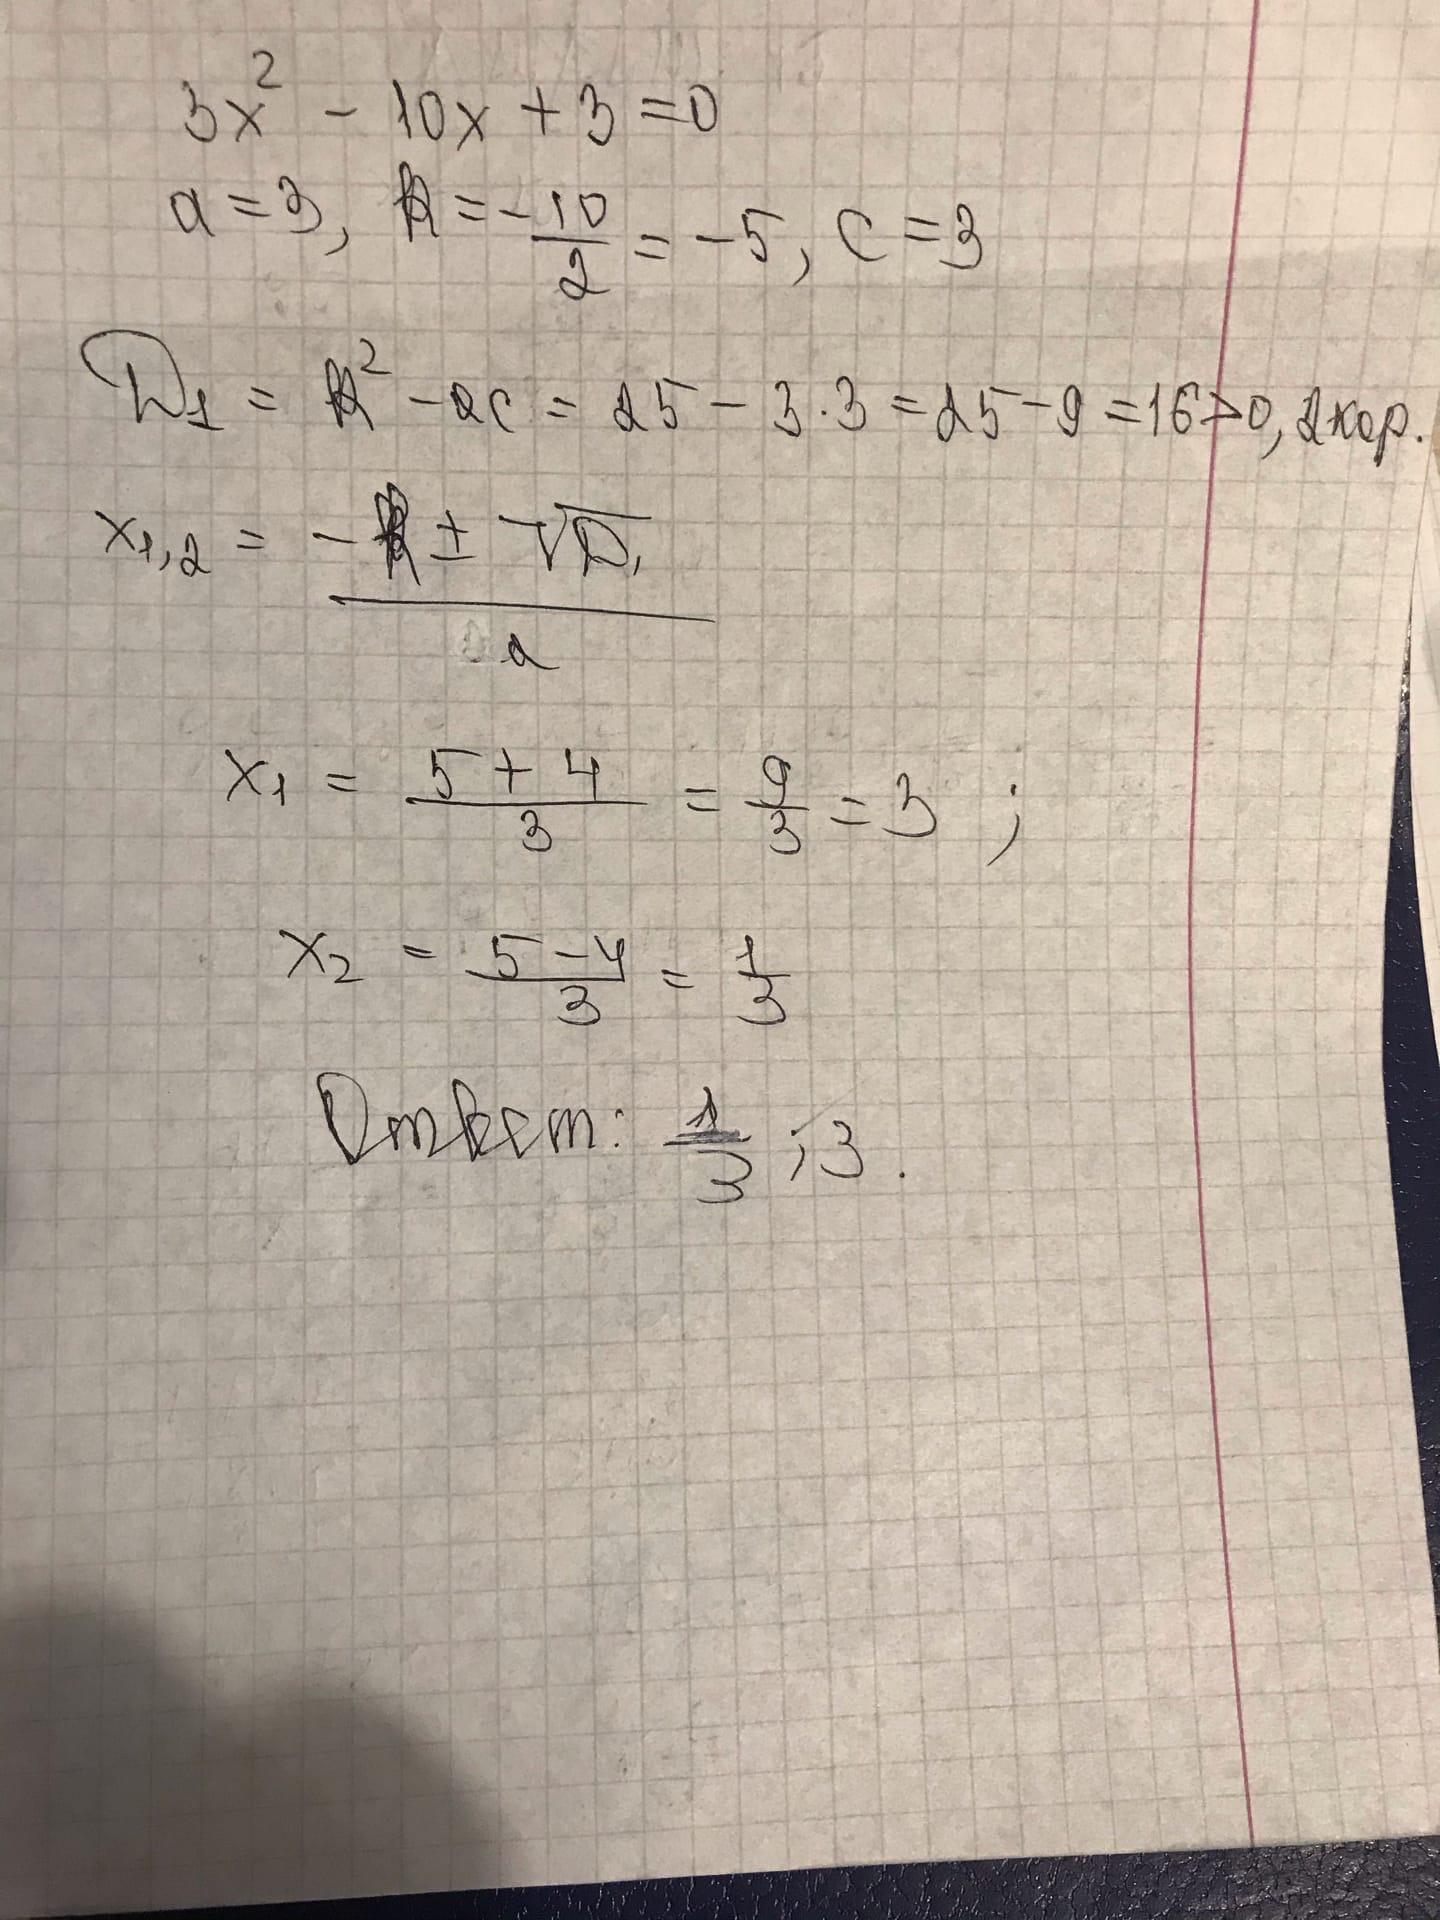 3x² - 10x + 3 = 0
a = 3, k = -10/2 = -5, c = 3
D₁ = k² - ac = 25 - 3·3 = 25 - 9 = 16 > 0, 2 кор.
x₁,₂ = (-k ± √D₁)/a
x₁ = (5 + 4)/3 = 9/3 = 3 ;
x₂ = (5 - 4)/3 = 1/3
Ответ: 1/3 ; 3 .